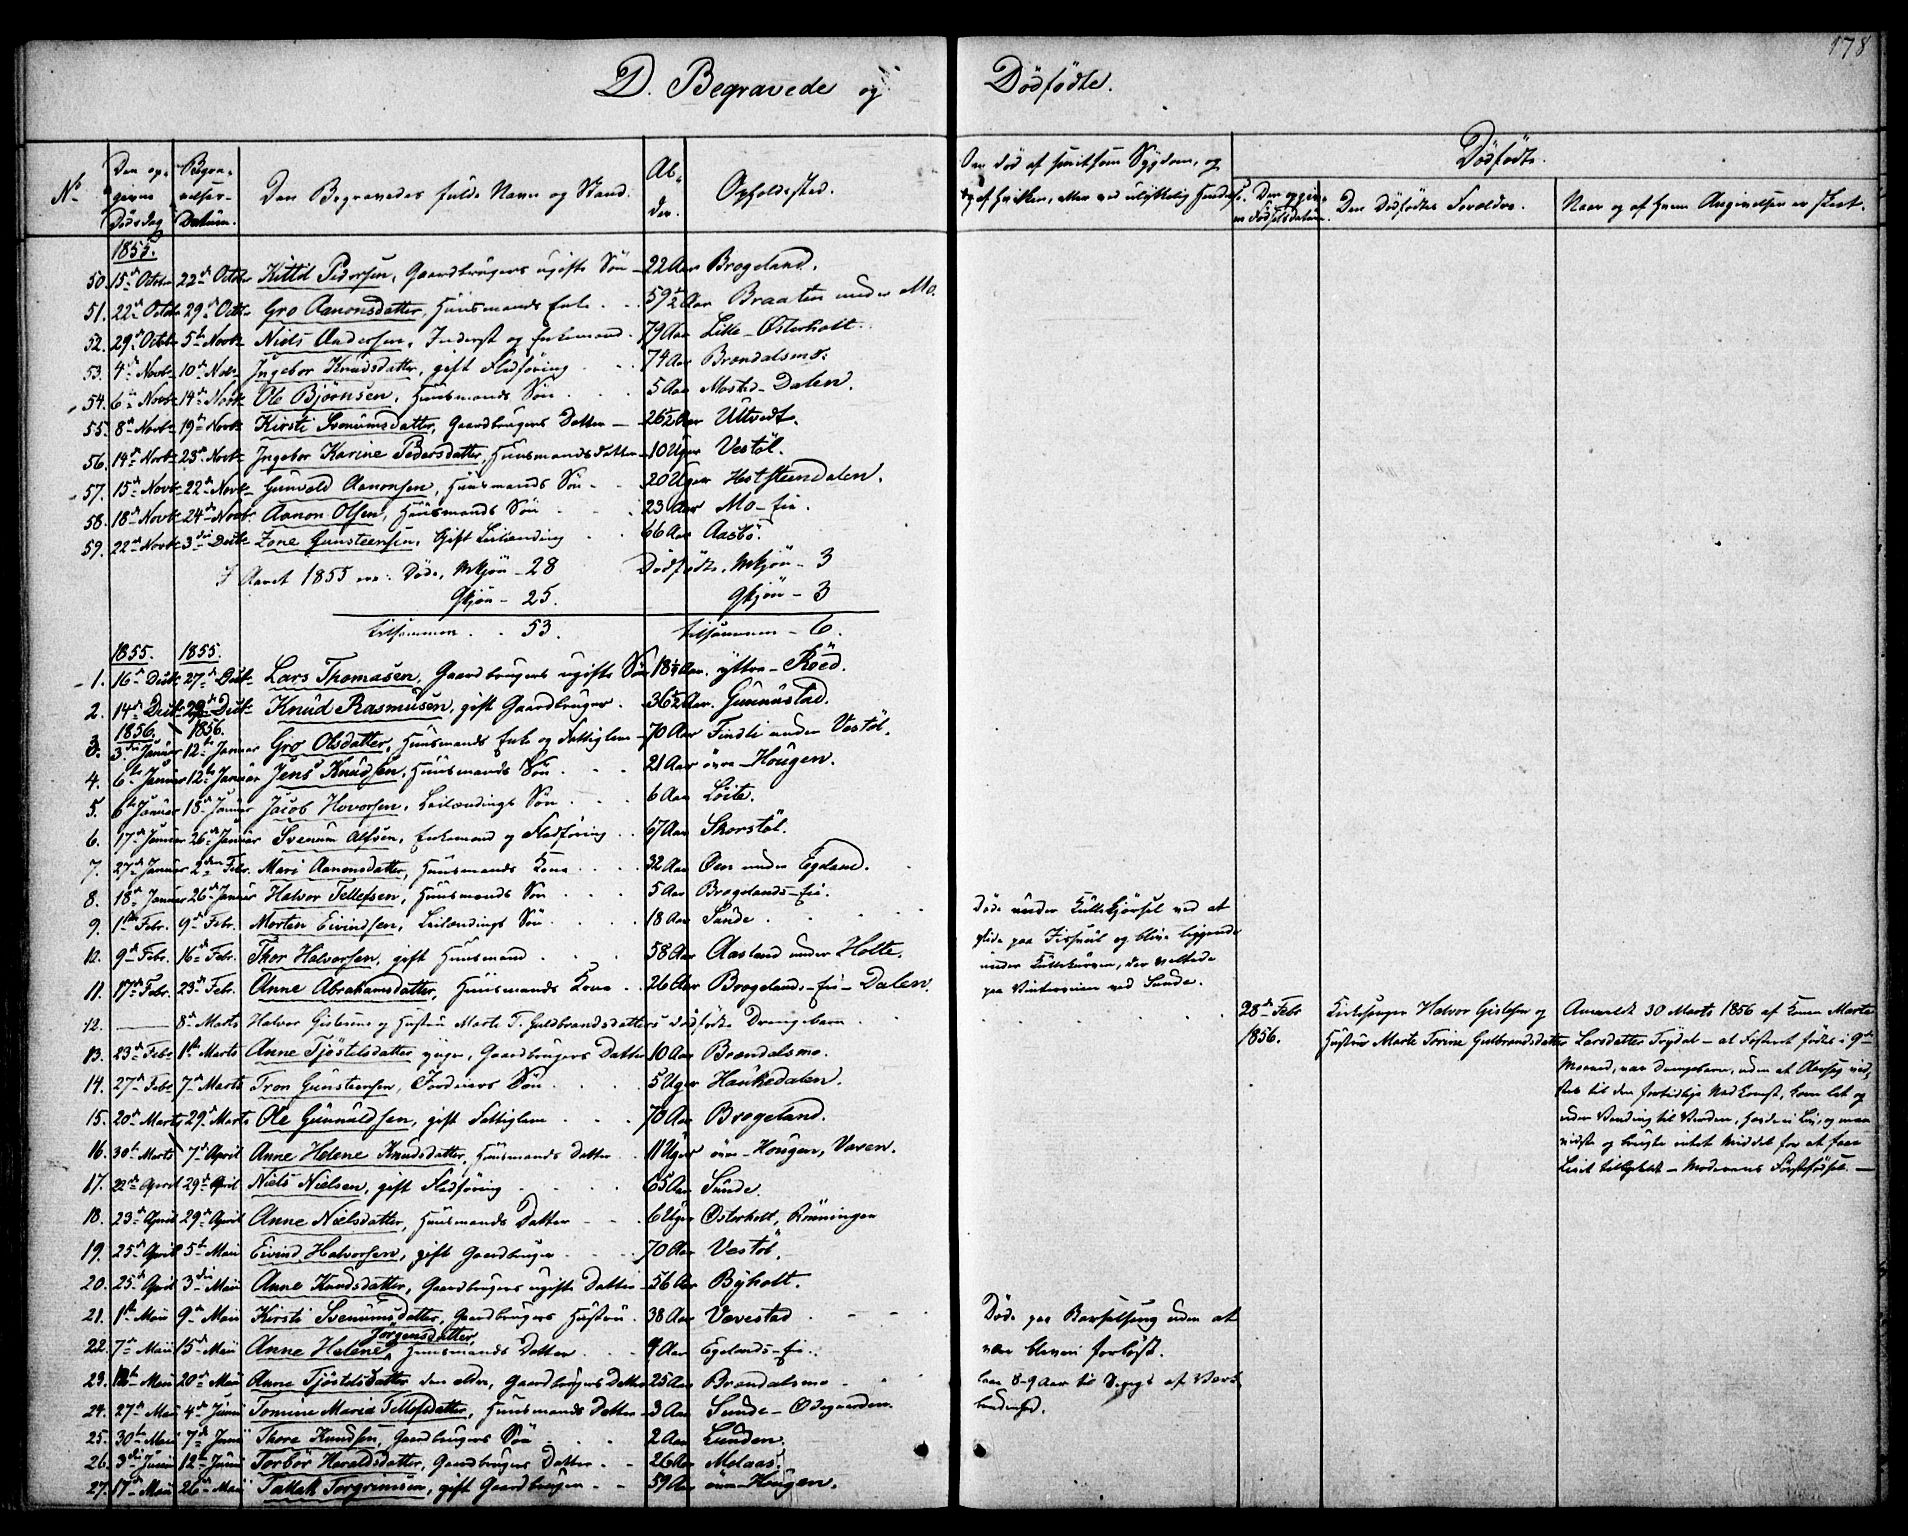 178
D. Begravede og Dødfødte.
No. Den opgivne Dødsdag Begravelses-Datum. Den Begravedes fulde Navn og Stand. Alder. Opholdssted. Om død af smitsom Sygdom, og af hvilken, eller ved ulykkelig Hændelse. Dødfødte.
Den opgivne Fødselsdatum. Den Dødfødtes Forældre. Naar og af hvem Angivelsen er skeet.
1855.
50. 15de Octbr 22de Octbr Kittil Pedersen, Gaardbrugers ugifte Søn 22 Aar Brogeland.
51. 22de Octbr 29de Octbr Gro Aanonsdatter, Huusmands Enke 59½ Aar Braaten under Mo.
52. 29de Octbr 5te Novbr Niels Andersen, Inderst og Enkemand 79 Aar Lille-Østerholt.
53. 4de Novbr 10de Novbr Ingebor Knudsdatter, gift Fladføring 74 Aar Brændalsmo.
54. 6te Novbr 14de Novbr Ole Bjørnsen, Huusmands Søn 5 Aar Mostad-Dalen.
55. 8de Novbr 19de Novbr Kirsti Svenumsdatter, Gaardbrugers Datter 26½ Aar Ultvedt.
56. 14de Novbr 23de Novbr Ingebor Karine Pedersdatter, Huusmands Datter 10 Uger Vestøl.
57. 15de Novbr 22de Novbr Gunvald Aanonsen, Huusmands Søn 20 Uger Heststeendalen.
58. 18de Novbr 24de Novbr Aanon Olsen, Huusmands Søn 23 Aar Mo-Eie.
59. 22de Novbr 3die Decbr Zone Gunsteensen, Gift Leilending 66 Aar Aasbø.
I Aaret 1855 ere: Døde, Mkjøn - 28 Dødfødte, Mkjøn - 3
Qkjøn - 25. Qkjøn - 3
tilsammen 53. tilsammen - 6.
1855. 1855.
1. 16de Decbr 27de Decbr Lars Thomasen, Gaardbrugers ugifte Søn 18½ Aar. yttre-Røed.
2. 14de Decbr 29de Decbr Knud Rasmusen, gift Gaardbruger 36½ Aar. Gunnustad.
1856. 1856.
3. 3die Januar 12te Januar Gro Olsdatter, Huusmands Enke og Fattiglem 70 Aar Findli under Vestøl.
4. 6te Januar 12te Januar Jens Knudsen, Huusmands Søn 21 Aar øvre-Hougen.
5. 6te Januar 15de Januar Jacob Hovorsen, Leilændings Søn 6 Aar Løite.
6. 17de Januar 26de Januar Svenum Alfsen, Enkemand og Fladføring 67 Aar Skorstøl.
7. 27de Januar 2den Febr. Mari Aanonsdatter, Huusmands Kone 32 Aar Øen under Egeland.
8. 18de Januar 26de Januar Halvor Tellefsen, Huusmands Søn 5 Aar Brogelands-Eie.
9. 1ste Febr. 9de Febr. Morten Eivindsen, Leilændings Søn 18 Aar Sunde. Døde under Kullekjørsel ved at
glide paa Issvul og blive liggende
under Kullekurven, der veltede
paa Vinterveien ved Sunde.
10. 9de Febr. 16de Febr. Thor Halvorsen, gift Huusmand 58 Aar Aasland under Holte.
11. 17de Febr. 23de Febr. Anne Abrahamsdatter, Huusmands Kone 26 Aar Brogelands-Eie-Dalen.
12. 8de Marts Halvor Gislesens og Hustru Marte T. Guldbrandsdatters dødfødte Drengebarn
28de Febr 1856. Kirkesanger Halvor Gislesen og Hustru Marte Torine Gulbrandsdatter
Anmeldt 30 Marts 1856 af Konen Marte
Larsdatter Frydal - at Fosteret fødtes i 9de
Maaned, var Drengebarn, uden at Aarsag vid-
stes til den fortidlige Nedkomst, kom let og
uden Vending til Verden, havde ei Liv, og man
vidste og brugte intet Middel for at faae
Livet tilbage - Moderens Førstefødsel. -
13. 23de Febr 1ste Marts Anne Tjøstelsdatter, yngre, Gaardbrugers Datter 10 Aar Brændalsmo.
14. 27de Febr 7de Marts Tron Gunsteensen, Søn 5 Uger Haukedalen.
15. 20de Marts 29de Marts Ole Gunnuldsen, gift Fattiglem 70 Aar Brogeland.
16. 30te Marts 7de April Anne Helene Knudsdatter, Huusmands Datter 11 Uger øvre-Hougen, Vasen.
17. 22de April 29de April Niels Nielsen, gift Fladføring 65 Aar Sunde.
18. 23de April 29de April Anne Nielsdatter, Huusmands Datter 6 Uger Østerholt, Rønningen
19. 25de April 5te Maii Eivind Halvorsen, gift Gaardbruger 70 Aar Vestøl.
20. 25de April 3die Maii Anne Knudsdatter, Gaardbrugers ugifte Datter 56 Aar Byholt.
21. 1ste Maii 9de Maii Kirsti Svenumsdatter, Gaardbrugers Hustru 38 Aar Vævestad Døde paa Barselseng uden at
være bleven forløst.
22. 7de Maii 15de Maii Anne Helene Jørgensdatter, Huusmands Datter 9 Aar Egelands-Eie.
23. 12te Maii 20de Maii Anne Tjøstelsdatter den eldre, Gaardbrugers Datter 25 Aar Brændalsmo laae 8-9 Aar til Sengs af Værk-
brudenhed.
24. 27de Maii 4de Junii Tomine Maria Tellefsdatter, Huusmands Datter 3 Aar Sunde-Ødegaarden.
25. 30te Maii 7de Junii Thore Knudsen, Gaardbrugers Søn 2 Aar Lunden.
26. 3die Junii 12te Junii Torbør Haraldsdatter, Gaardbrugers Datter 26 Aar Molaas.
27. 17de Maii 26de Maii Tallak Torgrimsen, gift Gaardbruger 59 Aar øvre-Hougen.